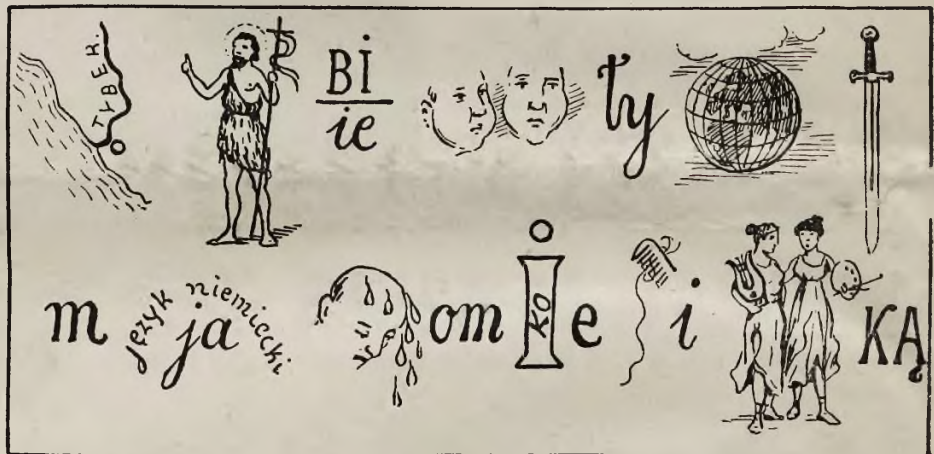 TYBER.
BI
ie
ty
m język niemiecki ja om ko i e i KĄ